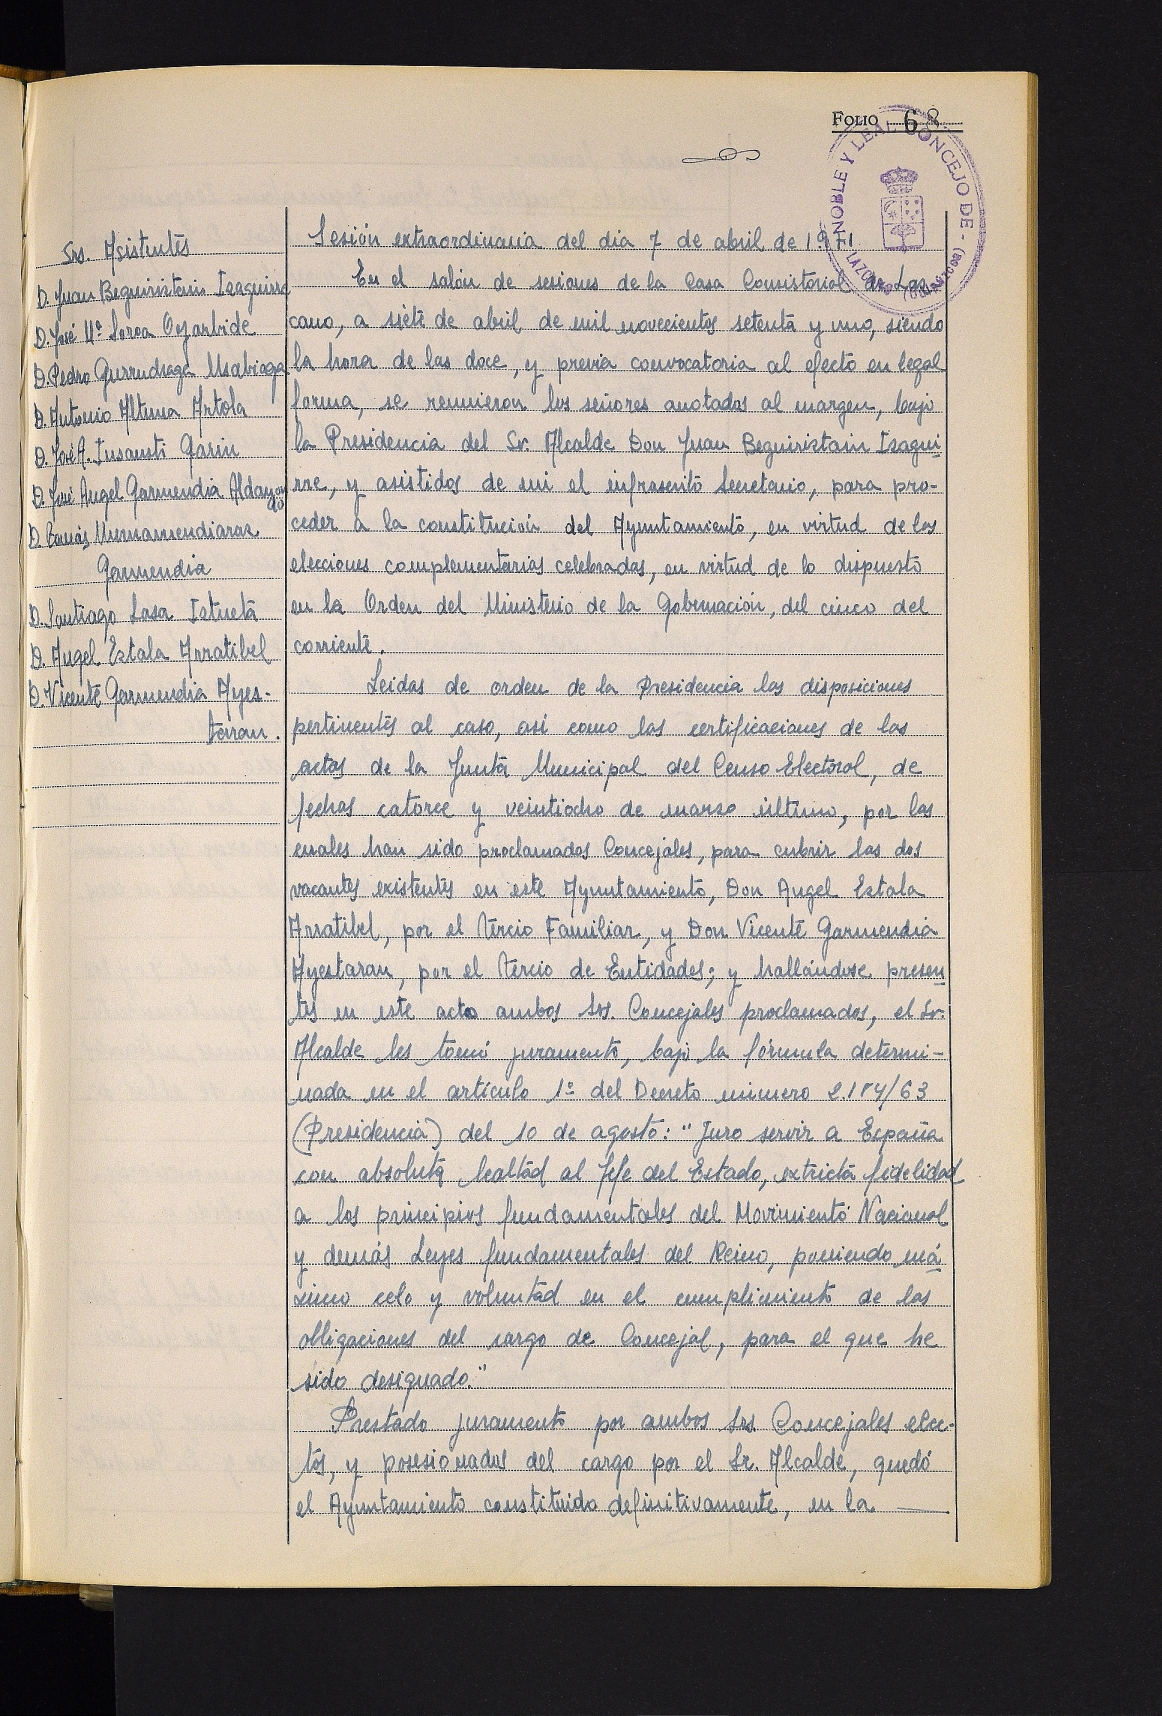 FOLIO 68
NOBLE Y LEAL CONCEJO DE - LAZCANO - (GUIPÚZCOA)
Srs. Asistentes
D. Juan Beguiristain Izaguirre
D. José Mª Soroa Oyarbide
D. Pedro Gurruchaga Usabiaga
D. Antonio Altuna Artola
D. José A. Insausti Garin
D. José Angel Garmendia Aldayondo
D. Tomás Urmamendiaraz
Garmendia
D. Santiago Lasa Iztueta
D. Angel Estala Arratibel
D. Vicente Garmendia Ayes-
taran.
Sesión extraordinaria del dia 7 de abril de 1971
En el salón de sesiones de la Casa Consistorial de Laz
cano, a siete de abril de mil novecientos setenta y uno, siendo
la hora de las doce, y previa convocatoria al efecto en legal
forma, se reunieron los señores anotados al margen, bajo
la Presidencia del Sr. Alcalde Don Juan Beguiristain Izagui
rre, y asistidos de mi el infrascrito Secretario, para pro-
ceder a la constitución del Ayuntamiento, en virtud de las
elecciones complementarias celebradas, en virtud de lo dispuesto
en la Orden del Ministerio de la Gobernación, del cinco del
corriente.
Leidas de orden de la Presidencia las disposiciones
pertinentes al caso, asi como las certificaciones de las
actas de la Junta Municipal del Censo Electoral, de
fechas catorce y veintiocho de marzo último, por las
cuales han sido proclamados Concejales, para cubrir las dos
vacantes existentes en este Ayuntamiento, Don Angel Estala
Arratibel, por el Tercio Familiar, y Don Vicente Garmendia
Ayestaran, por el Tercio de Entidades; y hallándose presen
tes en este acto ambos Srs. Concejales proclamados, el Sr.
Alcalde les tomó juramento, bajo la fórmula determi-
nada en el artículo 1º del Decreto número 2.184/63
(Presidencia) del 10 de agosto: "Juro servir a España
con absoluta lealtad al Jefe del Estado, extricta fidelidad
a los principios fundamentales del Movimiento Nacional
y demás Leyes fundamentales del Reino, poniendo má
ximo celo y voluntad en el cumplimiento de las
obligaciones del cargo de Concejal, para el que he
sido designado."
Prestado juramento por ambos Srs. Concejales elec-
tos, y posesionados del cargo por el Sr. Alcalde, quedó
el Ayuntamiento constituido definitivamente, en la